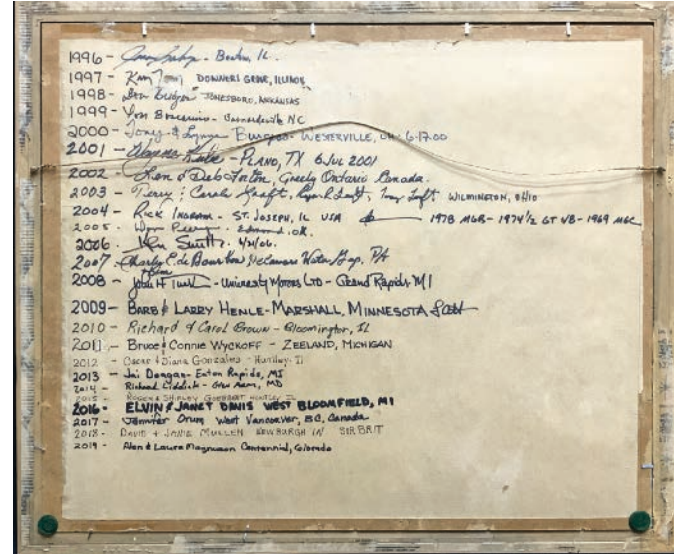 1996 - Benton, IL.
1997 - DOWNERS GROVE, ILLINOIS
1998 - JONESBORO, ARKANSAS
1999 - NC
2000 - Tony & Lynne Burgess - WESTERVILLE, OH. 6-17-00
2001 - Wayne - PLANO, TX 6 JUL 2001
2002 - Ken & Deb Greely Ontario Canada.
2003 - Terry & Carole WILMINGTON, OHIO
2004 - RICK INGRAM - ST. JOSEPH, IL USA 1978 MGB - 1974½ GT V8 - 1969 MGC
2005 - Edmond, OK.
2006 - Ken Smith. 4/21/06.
2007 - Charly E. de Bourbon Delaware Water Gap. PA
2008 - John H Twist - University Motors LTD - Grand Rapids MI
2009 - BARB & LARRY HENLE - MARSHALL, MINNESOTA
2010 - Richard & Carol Brown - Bloomington, IL
2011 - Bruce & Connie WYCKOFF - ZEELAND, MICHIGAN
2012 - Oscar & Diana Gonzales - Huntley, Il
2013 - Jai Deagan - Eaton Rapids, MI
2014 - Richard Liddick - MD
2015 - ROGER & SHIRLEY HUNTLEY IL
2016 - ELVIN & JANET DAVIS WEST BLOOMFIELD, MI
2017 - Jennifer Orum West Vancouver, B.C. Canada
2018 - DAVID + JANIE MULLEN NEWBURGH IN
2019 - Alan & Laura Magnuson Centennial, Colorado